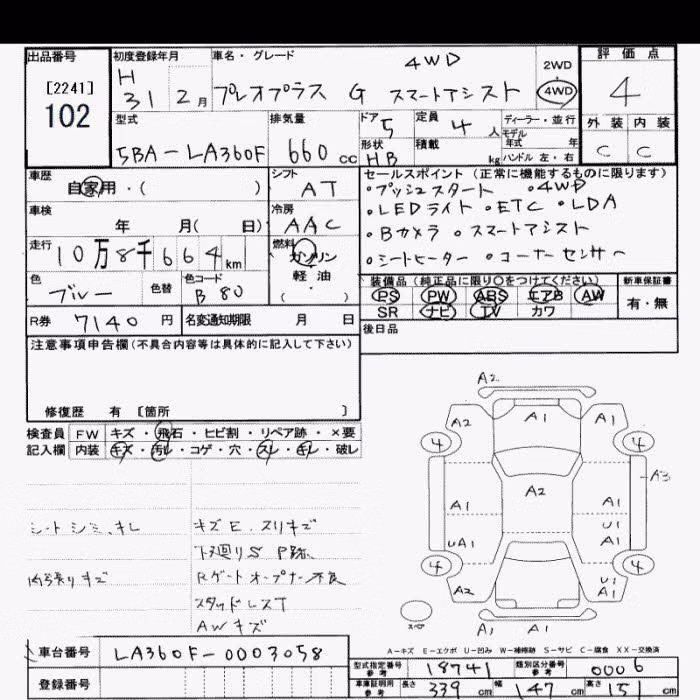 出品番号
[2241]
102
初度登録年月
H 31 2月
車名・グレード
4WD
プレオプラス G スマートアシスト
2WD
4WD
評価点
4
外装 内装
C C
型式
5BA-LA360F
排気量
660 cc
ドア 5
形状 HB
定員 4 人
積載 kg
ディーラー・並行
モデル
年式 年
ハンドル 左・右
車歴
自家用・( )
シフト
AT
車検
年 月( 日)
冷房
AAC
走行
10万8千664km
燃料
ガソリン
軽・油
( )
色
ブルー
色替
色コード
B80
R券 7140 円
名変通知期限 月 日
セールスポイント(正常に機能するものに限ります)
・プッシュスタート ・4WD
・LEDライト ・ETC ・LDA
・Bカメラ ・スマートアシスト
・シートヒーター ・コーナーセンサー
装備品(純正品に限り〇をつけてください)
PS PW ABS エアB AW
SR ナビ TV カワ
新車保証書
有・無
後日品
注意事項申告欄(不具合内容等は具体的に記入して下さい)
修復歴 有 [箇所 ]
検査員
記入欄
FW キズ・飛石・ヒビ割・リペア跡・×要
内装 キズ・汚レ・コゲ・穴・スレ・キレ・破レ
シートシミ、キレ
内張りキズ
キズE、スリキズ
下廻りS P跡、
Rゲートオープナー不良
スタッドレスT
AWキズ
A2
A2 A1 A1
4 4
A2
A3
A1 A1
U1
UA1 A1
4 4
A2 U1
A1
A1 A1
スペア
A-キズ E-エクボ U-凹み W-補修跡 S-サビ C-腐食 XX-交換済
車台番号 LA360F-0003058
登録番号
型式指定番号
参考
18741
類別区分番号
参考
0006
車庫証明用
参考
長さ 339 cm 幅 147 cm 高さ 151 cm